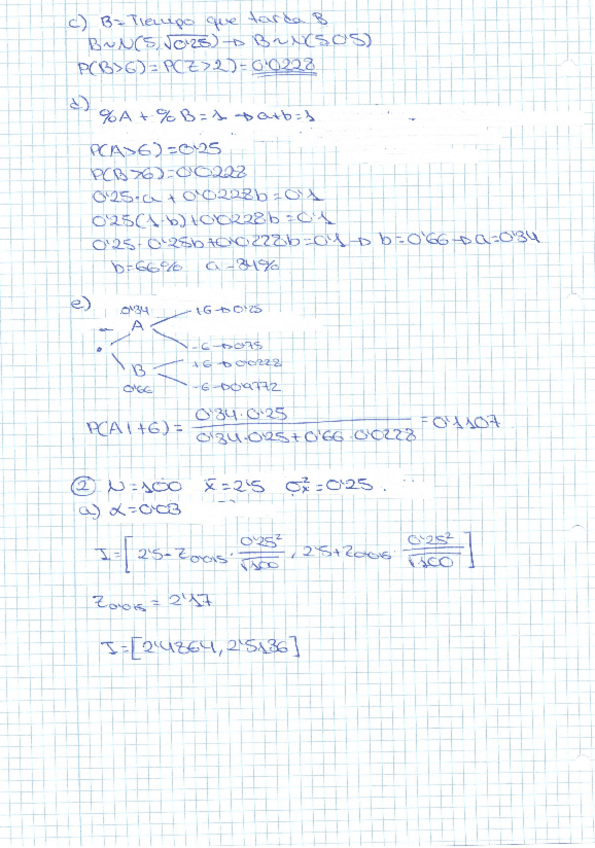 c) B = Tiempo que tarda B
B ~ N(5, √0'25) → B ~ N(5 0'5)
P(B>6) = P(Z>2) = 0'0228
d) %A + %B = 1 → a+b = 1
P(A>6) = 0'25
P(B>6) = 0'0228
0'25·a + 0'0228b = 0'1
0'25(1-b) + 0'0228b = 0'1
0'25 - 0'25b + 0'0228b = 0'1 → b = 0'66 → a = 0'34
b = 66% a = 34%
e)
0'34 +6 → 0'25
A
-6 → 0'75
B +6 → 0'0228
0'66 -6 → 0'9772
P(A|+6) = 0'34·0'25 / 0'34·0'25 + 0'66·0'0228 = 0'1107
② N = 100 x̄ = 2'5 σx² = 0'25.
a) α = 0'03
I = [2'5 - Z0'015 · 0'25²/√100, 2'5 + Z0'015 · 0'25²/√100]
Z0'015 = 2'17
I = [2'4864, 2'5136]